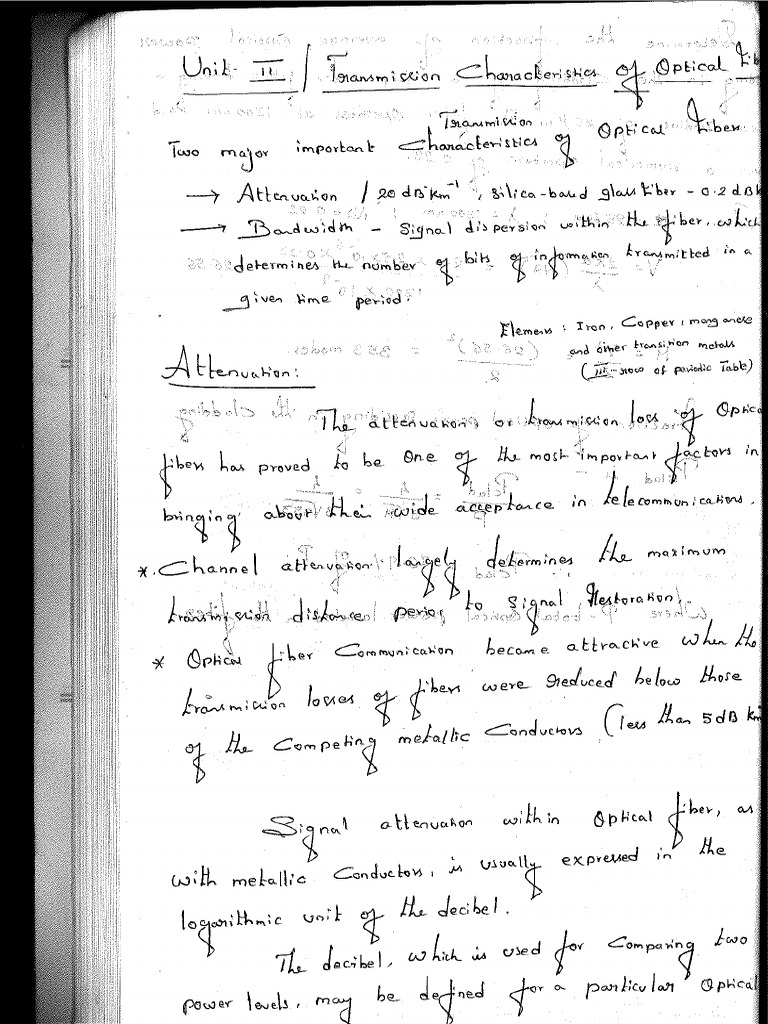 Unit - II / Transmission Characteristics of Optical Fib
Transmission
Two major important Characteristics of Optical Fiber
→ Attenuation / 20 dB km⁻¹, silica-based glass fiber - 0.2 dB k
→ Bandwidth - Signal dispersion within the fiber, which
determines the number of bits of information transmitted in a
given time period.
Elements : Iron, Copper, manganese
and other transition metals
(III - row of periodic Table)
Attenuation:
The attenuation or transmission loss of Optica
fibers has proved to be One of the most important factors in
bringing about their wide acceptance in telecommunications.
* Channel attenuation largely determines the maximum
transmission distance perior to Signal Restoration
* Optical fiber Communication became attractive when the
transmission losses of fibers were reduced below those
of the Competing metallic Conductors (less than 5 dB km
Signal attenuation within Optical fiber, as
with metallic Conductors, is usually expressed in the
logarithmic unit of the decibel.
The decibel, which is used for Comparing two
power levels, may be defined for a particular Optical